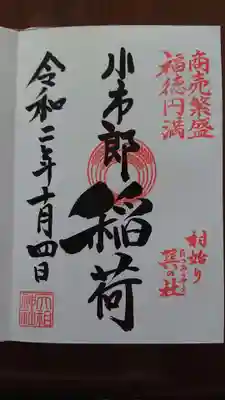 商売繁盛
福徳円満
村始り
其の社
小市郎稲荷
令和二年十月四日